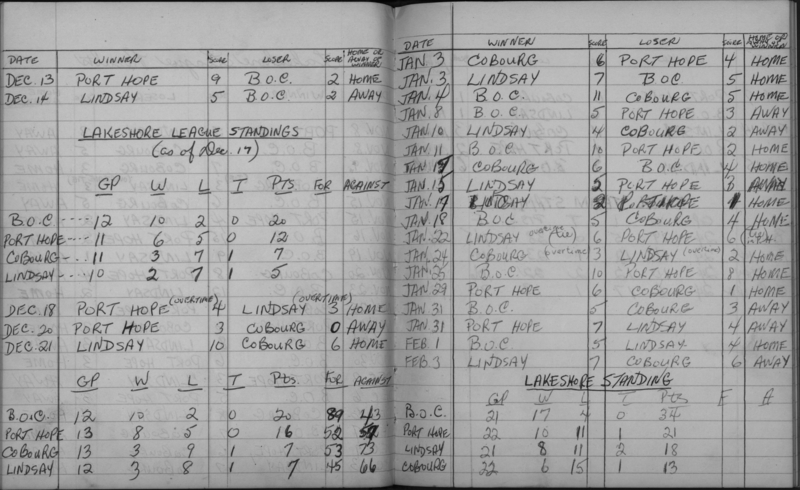 DATE WINNER SCORE LOSER SCORE HOME OR AWAY OF WINNER
DEC. 13 PORT HOPE 9 B.O.C. 2 HOME
DEC. 14 LINDSAY 5 B.O.C. 2 AWAY
LAKESHORE LEAGUE STANDINGS
(as of Dec. 17)
GP W L T Pts FOR AGAINST
B.O.C ---- 12 10 2 0 20
PORT HOPE -- 11 6 5 0 12
COBOURG --- 11 3 7 1 7
LINDSAY --- 10 2 7 1 5
DEC. 18 PORT HOPE (OVERTIME) 4 LINDSAY (OVERTIME) 3 HOME
DEC. 20 PORT HOPE 3 COBOURG 0 AWAY
DEC. 21 LINDSAY 10 COBOURG 6 HOME
GP W L T Pts. FOR AGAINST
B.O.C. 12 10 2 0 20 89 43
PORT HOPE 13 8 5 0 16 52
COBOURG 13 3 9 1 7 53 73
LINDSAY 12 3 8 1 7 45 66
DATE WINNER SCORE LOSER SCORE HOME OR AWAY OF WINNER
JAN. 3 COBOURG 6 PORT HOPE 4 HOME
JAN. 3 LINDSAY 7 BOC 5 HOME
JAN. 4 B.O.C. 11 COBOURG 5 HOME
JAN. 8 B.O.C. 5 PORT HOPE 3 AWAY
JAN. 10 LINDSAY 4 COBOURG 2 AWAY
JAN. 11 B.O.C. 10 PORT HOPE 2 HOME
JAN. COBOURG 6 B.O.C. 4 HOME
JAN. 15 LINDSAY PORT HOPE
JAN. 17 LINDSAY 2 PORT HOPE 1 HOME
JAN. 18 BOC 5 COBOURG 4 HOME
JAN. 22 LINDSAY overtime (tie) 6 PORT HOPE 6 (tie)
JAN. 24 COBOURG (overtime) 3 LINDSAY (overtime) 2 HOME
JAN. 25 B.O.C. 10 PORT HOPE 8 HOME
JAN 29 PORT HOPE 6 COBOURG 1 HOME
JAN 31 B.O.C. 5 COBOURG 3 AWAY
JAN 31 PORT HOPE 7 LINDSAY 4 AWAY
FEB. 1 BOC 5 LINDSAY 4 HOME
FEB. 3 LINDSAY 7 COBOURG 6 AWAY
LAKESHORE STANDING
GP W L T Pts F A
B.O.C. 21 17 4 0 34
PORT HOPE 22 10 11 1 21
LINDSAY 21 8 11 2 18
COBOURG 22 6 15 1 13